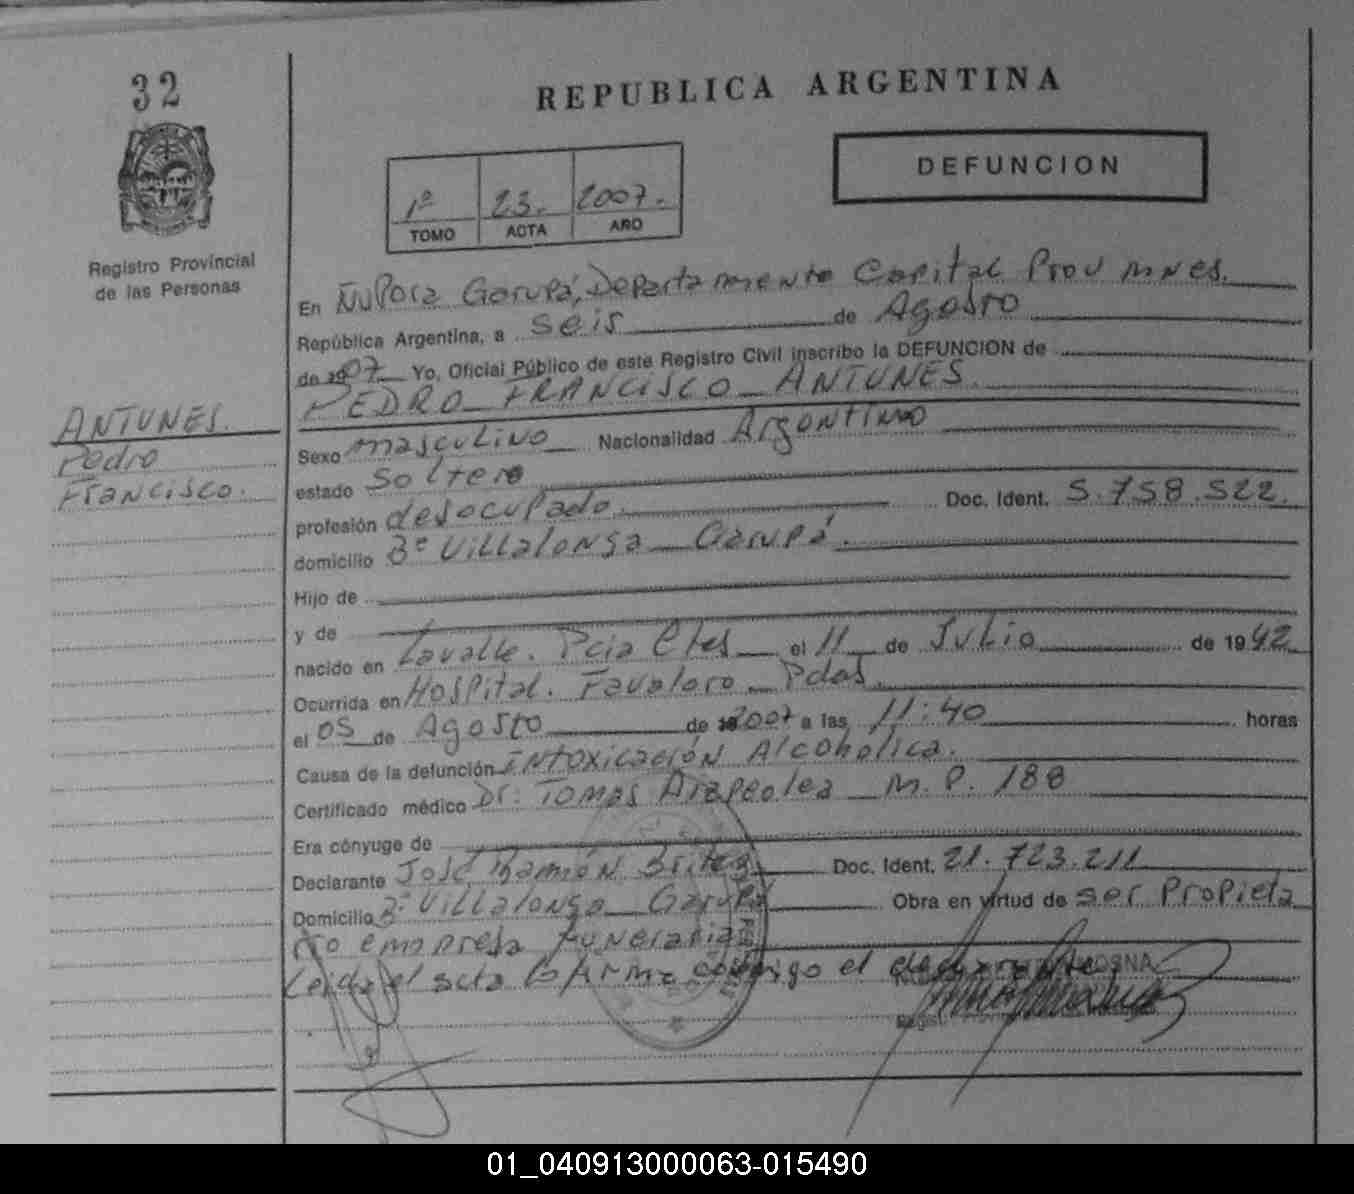 32
Registro Provincial
de las Personas
ANTUNES.
Pedro
Francisco.
REPUBLICA ARGENTINA
DEFUNCION
1º 23. 2007.
TOMO ACTA AÑO
En Ñu Pora Garupá, Departamento Capital Prov Mnes.
República Argentina, a seis de Agosto
de 07 Yo, Oficial Público de este Registro Civil inscribo la DEFUNCION de
PEDRO FRANCISCO ANTUNES.
Sexo masculino Nacionalidad Argentino
estado soltero
profesión desocupado. Doc. Ident. 5.758.522.
domicilio Bº Villalonga Garupá.
Hijo de
y de
nacido en Lavalle. Pcia Ctes el 11 de Julio de 1942
Ocurrida en Hospital. Favaloro Pdas.
el 05 de Agosto de 2007 a las 11:40 horas
Causa de la defunción intoxicación Alcoholica.
Certificado médico Dr. Tomas M.P. 188
Era cónyuge de
Declarante José Ramón Britez Doc. Ident. 21.723.211
Domicilio Bº Villalonga Garupá Obra en virtud de ser Propieta
rio empresa funeraria
Leida el acta la firma conmigo el declarante
01_040913000063-015490